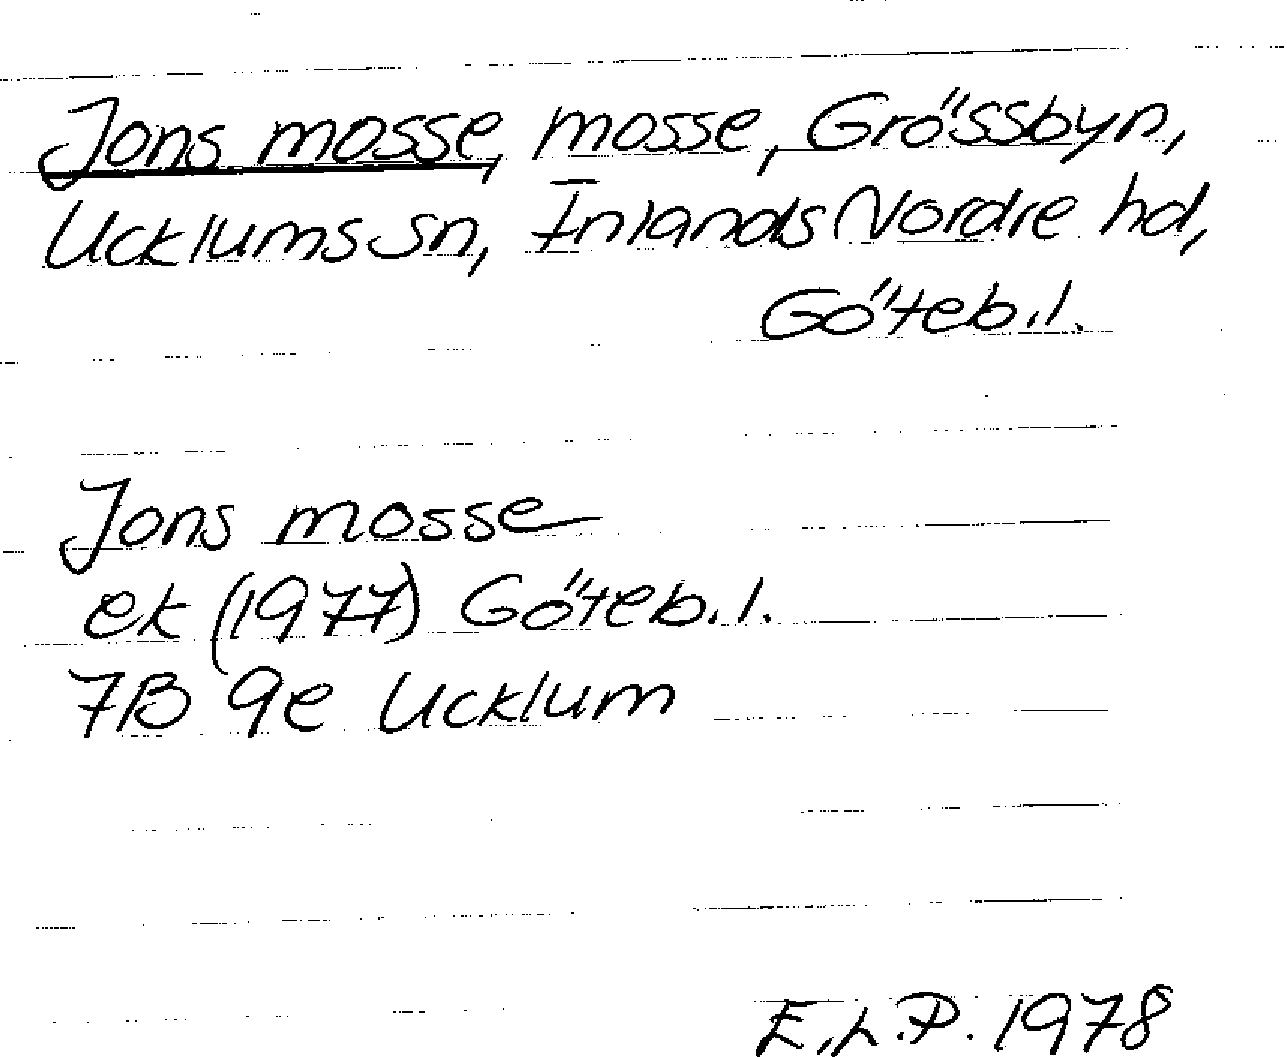 Jons mosse, mosse, Grössbyn,
Ucklums sn, Inlands Nordre hd,
Göteb.l.
Jons mosse
ek (1977) Göteb.l.
7B 9e Ucklum
E.L.P. 1978